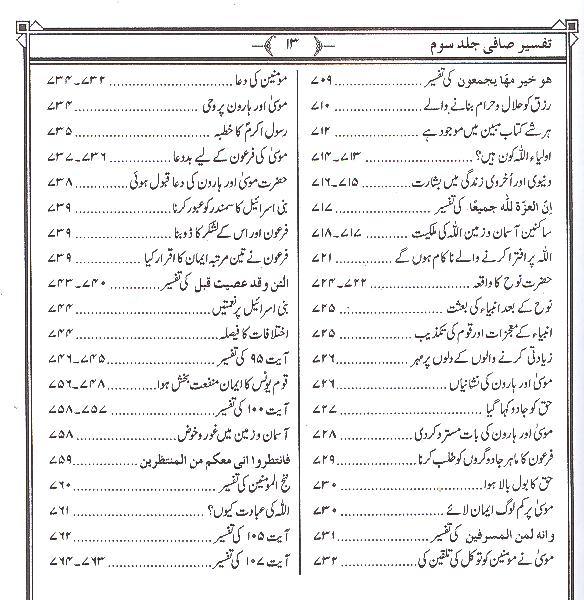 تفسیر صافی جلد سوم
۱۳
هو خير مهّا يجمعون کی تفسیر ........ ۷۰۹
رزق کو حلال و حرام بنانے والے ........ ۷۱۰
ہر شے کتاب مبین میں موجود ہے ........ ۷۱۲
اولیاء اللہ کون ہیں؟ ........ ۷۱۳۔۷۱۴
دنیوی اور اُخروی زندگی میں بشارت ........ ۷۱۵۔۷۱۶
انّ العزّة للّٰه جميعًا کی تفسیر ........ ۷۱۷
ساکنین آسمان و زمین اللہ کی ملکیت ........ ۷۱۷۔۷۱۸
اللہ پر افترا کرنے والے ناکام ہوں گے ........ ۷۲۱
حضرت نوح کا واقعہ ........ ۷۲۲۔۷۲۴
نوح کے بعد انبیاء کی بعثت ........ ۷۲۵
انبیاء کے معجزات اور قوم کی تکذیب ........ ۷۲۵
زیادتی کرنے والوں کے دلوں پر مہر ........ ۷۲۶
موسیٰ اور ہارون کی نشانیاں ........ ۷۲۶
حق کو جادو کہا گیا ........ ۷۲۷
موسیٰ اور ہارون کی بات مسترد کردی ........ ۷۲۸
فرعون کا ماہر جادوگروں کو طلب کرنا ........ ۷۲۹
حق کا بول بالا ہوا ........ ۷۳۰
موسیٰ پر کم لوگ ایمان لائے ........ ۷۳۰
وانه لمن المسرفين کی تفسیر ........ ۷۳۱
موسیٰ نے مومنین کو توکل کی تلقین کی ........ ۷۳۲
مومنین کی دعا ........ ۷۳۲۔۷۳۴
موسیٰ اور ہارون پر وحی ........ ۷۳۴
رسول اکرمؐ کا خطبہ ........ ۷۳۵
موسیٰ کی فرعون کے لیے بددعا ........ ۷۳۶۔۷۳۷
حضرت موسیٰ اور ہارون کی دعا قبول ہوئی ........ ۷۳۸
بنی اسرائیل کا سمندر کو عبور کرنا ........ ۷۳۹
فرعون اور اس کے لشکر کا ڈوبنا ........ ۷۳۹
فرعون نے تین مرتبہ ایمان کا اقرار کیا ........ ۷۳۹
الٰئن و قد عصيت قبل کی تفسیر ........ ۷۴۰۔۷۴۳
بنی اسرائیل پر نعمتیں ........ ۷۴۴
اختلافات کا فیصلہ ........ ۷۴۴
آیت ۹۵ کی تفسیر ........ ۷۴۵۔۷۴۶
قوم یونس کا ایمان منفعت بخش ہوا ........ ۷۴۸۔۷۵۶
آیت ۱۰۰ کی تفسیر ........ ۷۵۷۔۷۵۸
آسمان و زمین میں غور و خوض ........ ۷۵۸
فانتظروا انی معکم من المنتظرین ........ ۷۵۹
ننج المؤمنین کی تفسیر ........ ۷۶۰
اللہ کی عبادت کیوں؟ ........ ۷۶۱
آیت ۱۰۵ کی تفسیر ........ ۷۶۲
آیت ۱۰۷ کی تفسیر ........ ۷۶۳۔۷۶۴